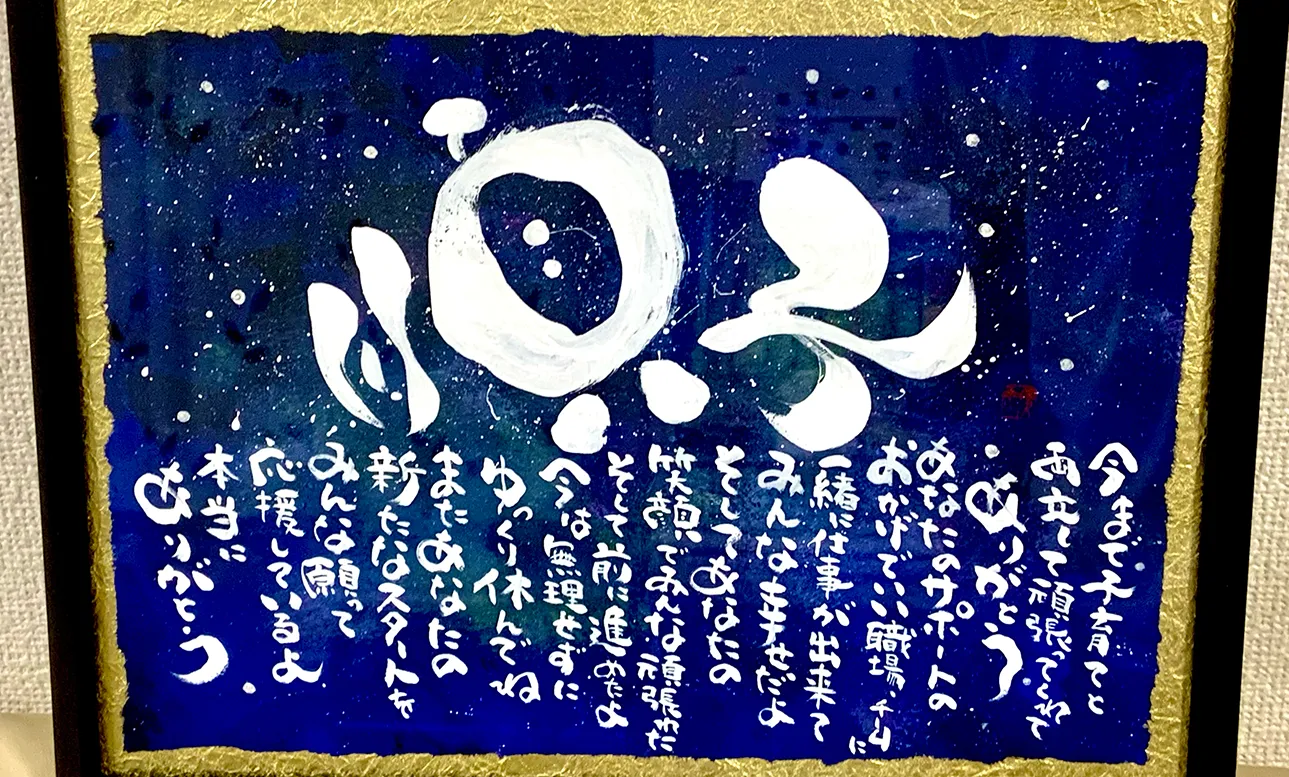 順子
今まで子育てと
両立して頑張ってくれて
ありがとう
あなたのサポートの
おかげでいい職場・チームに
一緒に仕事が出来て
みんな幸せだよ
そしてあなたの
笑顔でみんな頑張れた
そして前に進めたよ
今は無理せずに
ゆっくり休んでね
またあなたの
新たなスタートを
みんな願って
応援しているよ
本当に
ありがとう